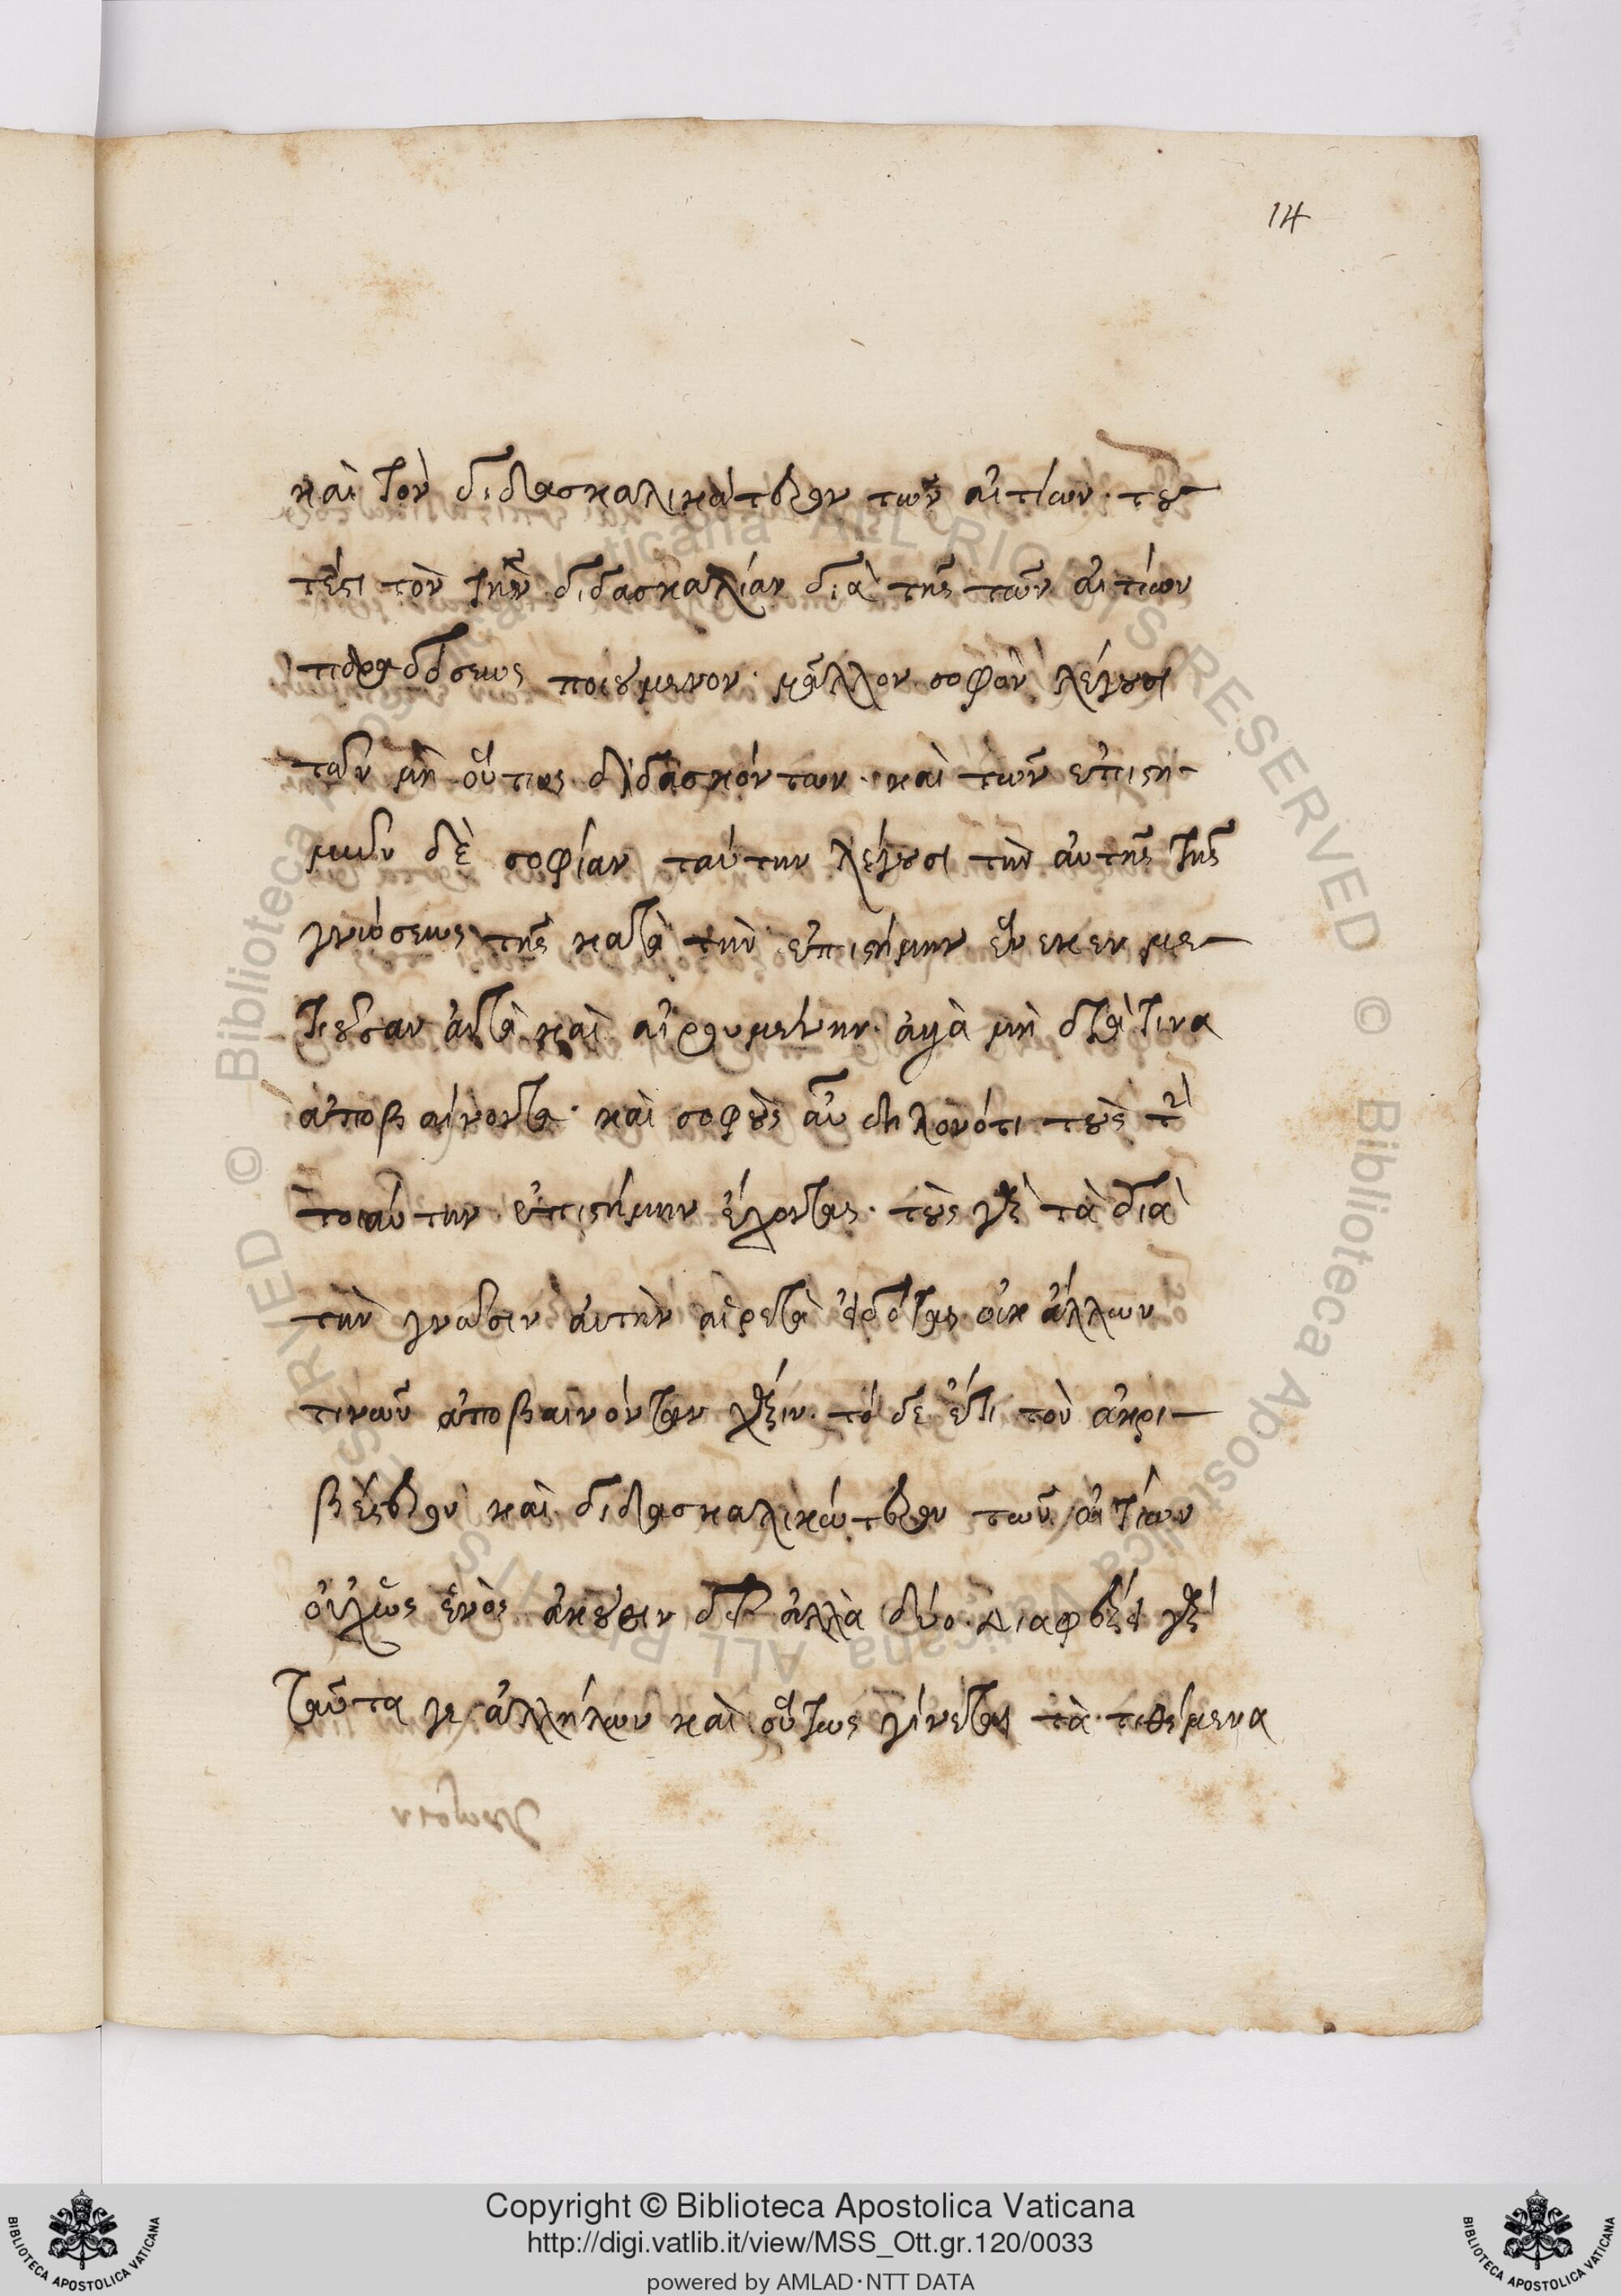 14
καὶ τὸν διδασκαλικώτερον τῶν αἰτίων· του
τέστι τὸν τὴν διδασκαλίαν διὰ τῆς τῶν αἰτίων
παραδόσεως ποιούμενον· μᾶλλον σοφὸν λέγουσι
τῶν μὴ οὕτως διδασκόντων· καὶ τῶν ἐπιστη
μῶν δὲ σοφίαν ταύτην λέγουσι τὴν αὐτῆς τῆς
γνώσεως τῆς κατὰ τὴν ἐπιστήμην ἕνεκεν με
τιοῦσαν αὐτὰ καὶ αἱρουμένην· ἀλλὰ μὴ διά τινα
ἀποβαίνοντα· καὶ σοφοὺς ἂν δηλονότι τοὺς τὴν
τοιαύτην ἐπιστήμην ἔχοντας· τοὺς γὰρ τὰ διὰ
τὴν γνῶσιν αὐτὴν αἱρετὰ εἰδότας οὐκ ἄλλων
τινῶν ἀποβαινόντων χάριν· τὸ δὲ ἔτι τὸν ἀκρι
βέστερον καὶ διδασκαλικώτερον τῶν αἰτίων
οὐχ ὡς ἑνὸς ἀκούειν δεῖ ἀλλὰ δύο· διαφέρει γὰρ
ταῦτα γε ἀλλήλων καὶ οὕτως γίνεται τὰ τιθέμενα
Copyright © Biblioteca Apostolica Vaticana
http://digi.vatlib.it/view/MSS_Ott.gr.120/0033
powered by AMLAD·NTT DATA
BIBLIOTECA APOSTOLICA VATICANA
BIBLIOTECA APOSTOLICA VATICANA